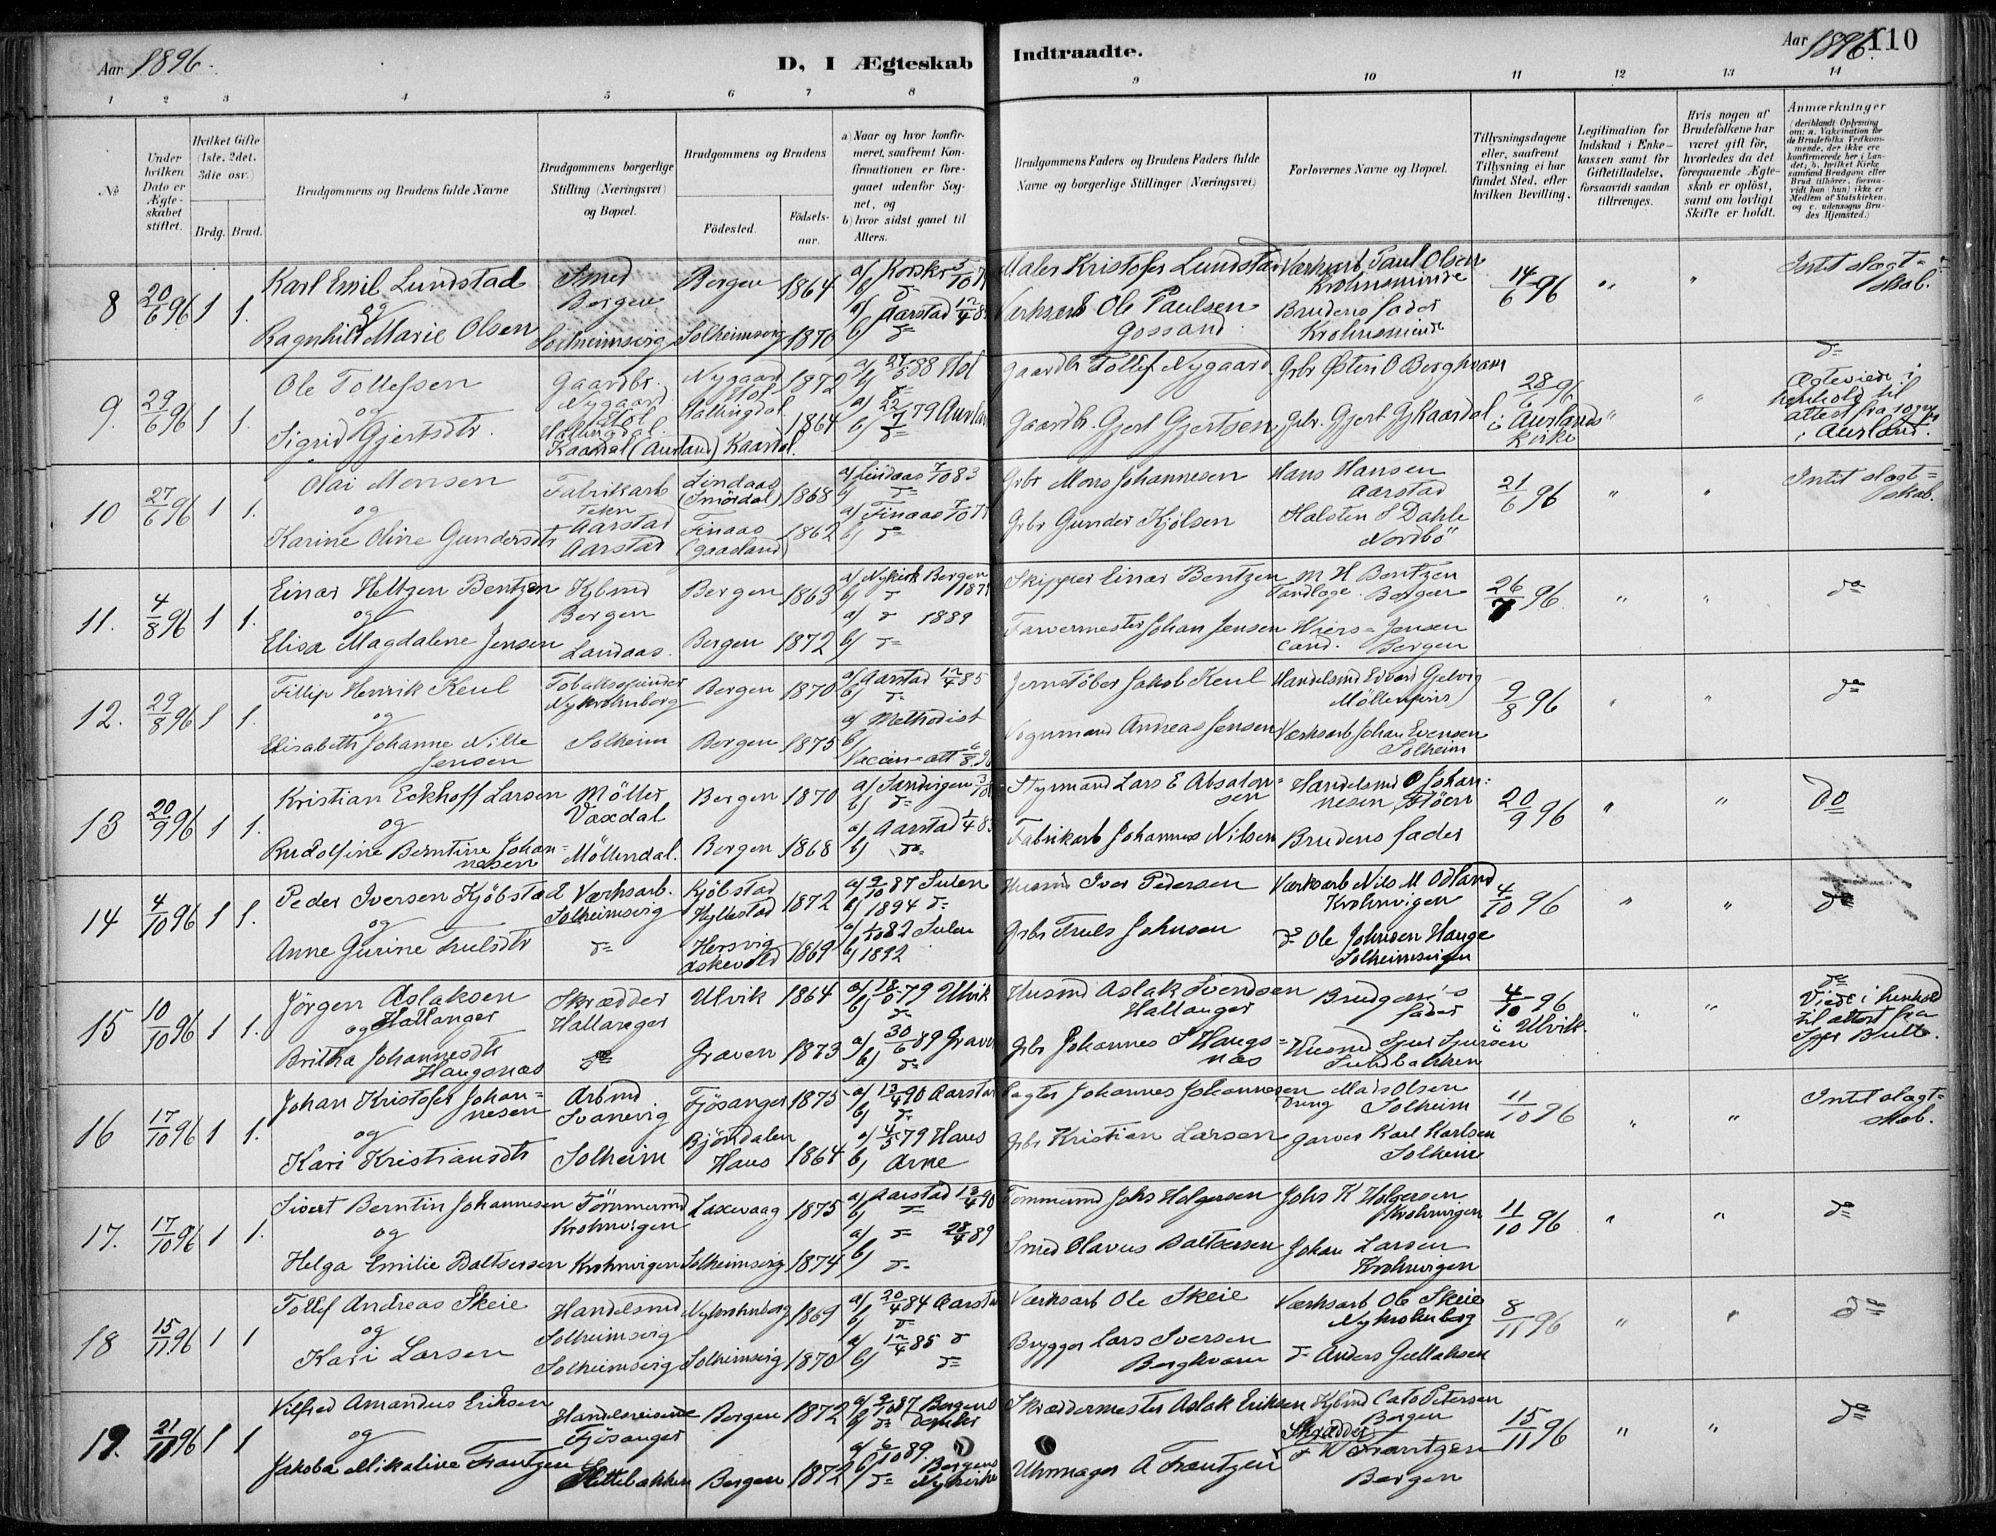 Aar 1896.
D, I Ægteskab Indtraadte.
Aar 1896.
110
1 2 3 4 5 6 7 8 9 10 11 12 13 14
No
Under hvilken Dato er Ægteskabet stiftet.
Hvilket Gifte (1ste, 2det, 3die osv.)
Brdg. Brud.
Brudgommens og Brudens fulde Navne
Brudgommens borgerlige Stilling (Næringsvei) og Bopæl.
Brudgommens og Brudens
Födested.
Födsels-aar.
a) Naar og hvor konfirmeret, saafremt Konfirmationen er foregaaet udenfor Sognet, og
b) hvor sidst gaaet til Alters.
Brudgommens Faders og Brudens Faders fulde Navne og borgerlige Stillinger (Næringsvei)
Forlovernes Navne og Bopæl.
Tillysningsdagene eller, saafremt Tillysning ei har fundet Sted, efter hvilken Bevilling.
Legitimation for Indskud i Enkekassen samt for Giftetilladelse, forsaavidt saadan tiltrænges.
Hvis nogen af Brudefolkene har været gift för, hvorledes da det foregaaende Ægteskab er oplöst, samt om lovligt Skifte er holdt.
Anmærkninger (deriblandt Oplysning om: a. Vakcination for de Brudefolks Vedkommende, der ikke ere konfirmerede her i Landet; b. hvilket Kirkesamfund Brudgom eller Brud tilhörer, forsaavidt han (hun) ikke er Medlem af Statskirken, og c. udensogns Brudes Hjemsted.)
8 20/6 96 1 1. Karl Emil Lundstad Smed Bergen Bergen 1864 a) Korskr 3/10 b) d= Maler Kristofer Lundstad Værksarb. Paul Olsen Krohnsminde 14/6 96 " " Intet slægtskab.
og
Ragnhild Marie Olsen Solheimsvig Solheimsvig 1870 a) Aarstad 12/4 b) d= Værksarb Ole Paulsen Brudens fader Krohnsminde
9. 29/6 96 1 1. Ole Tollefsen Gaardbr. Nygaard Hol Hallingdal Nygaard Hol Hallingdal 1872 a) 88 Hol b) d= Gaardbr Tollef Nygaard Grbr Östen O Berghvam 28/6 96 i Aurlands kirke " " d= Ægteviede i henhold til attest fra sogpr i Aurland.
og
Sigrid Gjertsdtr. Kaardal (Aurland) Kaardal. 1864 a) 22/7 79 Aurland b) d= Gaardb. Gjert Gjertsen Gbr. Gjert Gj Kaardal
10 27/6 96 1 1. Olai Monsen Fabrikarb Aarstad Lindaas (Smördal) 1868 a) Lindaas 7/10 83 b) d= Grbr Mons Johannesen Hans Hansen Aarstad 21/6 96 " " Intet slægtskab.
og
Karine Oline Gundersdtr Aarstad Finaas 1862 a) Finaas 7/10 b) d= Grbr Gunder Kjölsen Halsten S Dahle Nordbö
11. 4/8 96 1 1. Einar Heltzen Bentzen Kjbmd Bergen Bergen 1863 a) Nykirk Bergen b) d= Skipper Einar Bentzen M H Bentzen Tandlæge. Bergen 26/7 96. " " do
og
Elisa Magdalene Jensen Landaas. Bergen 1872 a) d= 1889 b) d= Farvermester Johan Jensen Wiers-Jensen cand. Bergen
12. 29/8 96 1 1. Fillip Henrik Keul Tobaksspinder Nykrohnborg Bergen 1870 a) Aarstad 12/4 85 b) d= Jernstöber Jakob Keul Handelsmd Edvard Gjelvig 9/8 96 " " do
og
Elisabeth Johanne Nille Jensen Solheim Bergen 1875 a) Methodist b) Vaccin-att Vognmand Andreas Jensen Værksarb Johan Evensen Solheim
13 20/9 96 1 1. Kristian Eckhoff Larsen Möller Vaxdal Bergen 1870 a) Sandvigen b) d= Styrmand Lars E Absalonsen Handelsmd O Johannesen Flöen 20/9 96 " " do
og
Rudolfine Berntine Johannesen Möllendal. Bergen 1868 a) Aarstad b) d= Fabrikarb Johannes Nilsen Brudens fader
14 4/10 96 1 1. Peder Iversen Kjöbstad Værksarb. Solheimsvig Kjöbstad Hyllestad 1872 a) 9/10 87 Sulen b) 1894 d= Husmd Iver Pedersen Værksarb Nils M Odland Krohnvigen 4/10 96 " " do
og
Anne Gurine Trulsdtr d= Hersvig Askevold 1869 a) 1/10 82 Sulen b) 1892 Grbr Truls Johnsen do Ole Johnsen Hauge Solheimsvigen
15 10/10 96 1 1. Jörgen Aslaksen Hallanger Skrædder Hallanger Ulvik 1864 a) 18/5 79 Ulvik b) d= Husmd Aslak Svendsen Hallanger Brudgom's fader 4/10 96 i Ulvik. " " do Viede i henhold til attest fra Sgpr
og
Britha Johannesdtr Haugsnæs do Graven 1873 a) 30/6 89 Graven b) d= Grbr Johannes S Haugsnæs Husmd Sjur Sjursen
16 17/10 96 1 1. Johan Kristofer Johannesen Arbmd Svanevig Fjösanger 1875 a) 13/4 90 Aarstad b) d= Johannes Johannesen Mads Olsen Solheim 11/10 96 " " Intet slægtskab.
og
Kari Kristiansdtr Solheim Bjöndalen Haus 1864 a) 4/5 79 Haus b) Arne Grbr Kristian Larsen Garver Karl Karlsen Solheim
17. 17/10 96 1 1. Sivert Berntin Johannesen Tömmermd Krohnvigen Laxevaag 1875 a) Aarstad 13/4 90 b) = Tömmermd Johs Holgersen Johs K Holgersen Krohnvigen 11/10 96 " " do
og
Helga Emilie Baltsersen Krohnvigen Solheimsvig 1874 a) d= 28/4 89 b) d= Smed Olavus Baltsersen Johan Larsen Krohnvigen
18 15/11 96 1 1 Tollef Andreas Skeie Handelsmd Solheimsvig Nykrohnborg 1869 a) 20/4 84 Aarstad b) d= Værksarb Ole Skeie Værksarb Ole Skeie Nykrohnborg 8/11 96 " " do
og
Kari Larsen Solheimsvig Solheimsvig 1870 a) 12/4 85 d b) d= Brygger Lars Iversen Berghvam d= Anders Gullaksen
19. 21/11 96 1 1 Vilfred Amandus Eriksen Handelsreisende Fjösanger Bergen 1872 a) 9/10 87 Bergens b) d= Domkr Skræddermester Aslak Eriksen Kjbmd Cato Petersen Bergen 15/11 96 " " do
og
Jakoba Mikaline Frantzen Slettebakken Bergen 1872 a) 6/10 89 b) d= Bergens Nykirke Uhrmager A Frantzen Skrædder F W Frantzen Bergen